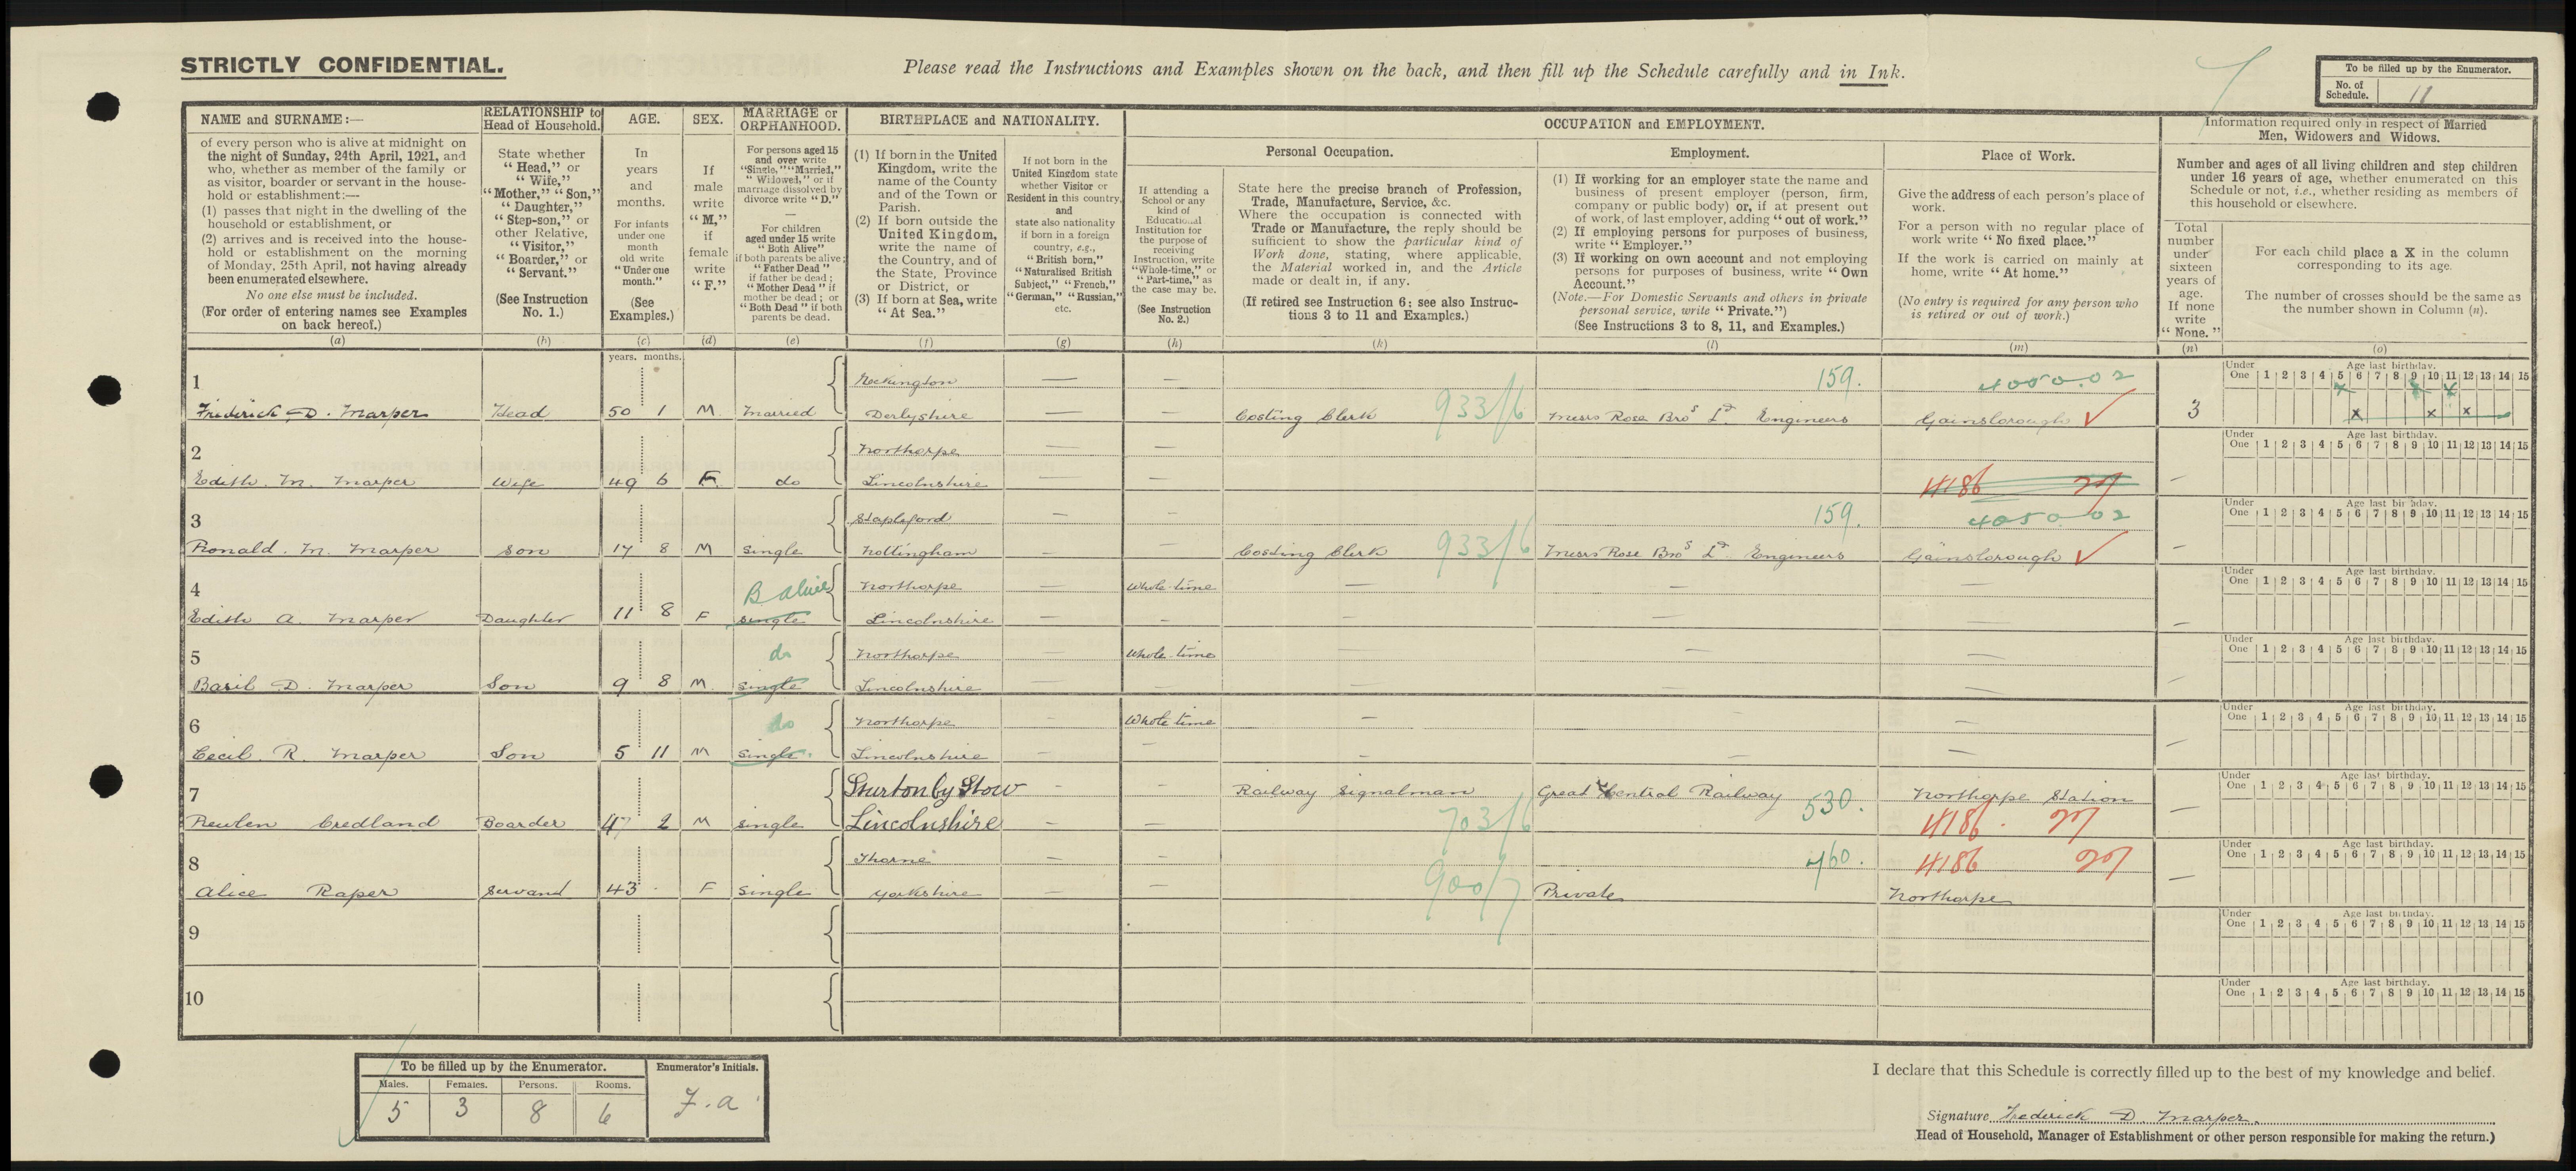 STRICTLY CONFIDENTIAL.
Please read the Instructions and Examples shown on the back, and then fill up the Schedule carefully and in Ink.
To be filled up by the Enumerator.
No. of Schedule. 11
NAME and SURNAME:—
of every person who is alive at midnight on
the night of Sunday, 24th April, 1921, and
who, whether as member of the family or
as visitor, boarder or servant in the house-
hold or establishment:—
(1) passes that night in the dwelling of the
household or establishment, or
(2) arrives and is received into the house-
hold or establishment on the morning
of Monday, 25th April, not having already
been enumerated elsewhere.
No one else must be included.
(For order of entering names see Examples
on back hereof.)
(a)
RELATIONSHIP to
Head of Household.
State whether
"Head," or
"Wife,"
"Mother," "Son,"
"Daughter,"
"Step-son," or
other Relative,
"Visitor,"
"Boarder," or
"Servant."
(See Instruction
No. 1.)
(b)
AGE.
In
years
and
months.
For infants
under one
month
old write
"Under one
month."
(See
Examples.)
(c)
SEX.
If
male
write
"M,"
if
female
write
"F."
(d)
MARRIAGE or
ORPHANHOOD.
For persons aged 15
and over write
"Single," "Married,"
"Widowed," or if
marriage dissolved by
divorce write "D."
—
For children
aged under 15 write
"Both Alive"
if both parents be alive;
"Father Dead"
if father be dead;
"Mother Dead" if
mother be dead; or
"Both Dead" if both
parents be dead.
(e)
BIRTHPLACE and NATIONALITY.
(1) If born in the United
Kingdom, write the
name of the County
and of the Town or
Parish.
(2) If born outside the
United Kingdom,
write the name of
the Country, and of
the State, Province
or District, or
(3) If born at Sea, write
"At Sea."
(f)
If not born in the
United Kingdom state
whether Visitor or
Resident in this country,
and
state also nationality
if born in a foreign
country, e.g.,
"British born,"
"Naturalised British
Subject," "French,"
"German," "Russian,"
etc.
(g)
OCCUPATION and EMPLOYMENT.
Personal Occupation.
If attending a
School or any
kind of
Educational
Institution for
the purpose of
receiving
Instruction, write
"Whole-time," or
"Part-time," as
the case may be.
(See Instruction
No. 2.)
(h)
State here the precise branch of Profession,
Trade, Manufacture, Service, &c.
Where the occupation is connected with
Trade or Manufacture, the reply should be
sufficient to show the particular kind of
Work done, stating, where applicable,
the Material worked in, and the Article
made or dealt in, if any.
(If retired see Instruction 6: see also Instruc-
tions 3 to 11 and Examples.)
(k)
Employment.
(1) If working for an employer state the name and
business of present employer (person, firm,
company or public body) or, if at present out
of work, of last employer, adding "out of work."
(2) If employing persons for purposes of business,
write "Employer."
(3) If working on own account and not employing
persons for purposes of business, write "Own
Account."
(Note.—For Domestic Servants and others in private
personal service, write "Private.")
(See Instructions 3 to 8, 11, and Examples.)
(l)
Place of Work.
Give the address of each person's place of
work.
For a person with no regular place of
work write "No fixed place."
If the work is carried on mainly at
home, write "At home."
(No entry is required for any person who
is retired or out of work.)
(m)
Information required only in respect of Married
Men, Widowers and Widows.
Number and ages of all living children and step children
under 16 years of age, whether enumerated on this
Schedule or not, i.e., whether residing as members of
this household or elsewhere.
Total
number
under
sixteen
years of
age.
If none
write
"None."
(n)
For each child place a X in the column
corresponding to its age.
The number of crosses should be the same as
the number shown in Column (n).
(o)
years. months.
Under One Age last birthday. 1 2 3 4 5 6 7 8 9 10 11 12 13 14 15
1 Eckington 159. 4050.02
Frederick D. Marper Head 50 1 M. Married Derbyshire Costing Clerk 933/6 Messrs Rose Bros Ld. Engineers Gainsborough 3 x x x
Under One Age last birthday. 1 2 3 4 5 6 7 8 9 10 11 12 13 14 15
2 Northorpe
Edith. M. Marper Wife 49 6 F. do Lincolnshire 4186
Under One Age last birthday. 1 2 3 4 5 6 7 8 9 10 11 12 13 14 15
3 Stapleford 159. 4050.02
Ronald. M. Marper Son 17 8 M Single Nottingham Costing Clerk 933/6 Messrs Rose Bros Ld. Engineers Gainsborough
Under One Age last birthday. 1 2 3 4 5 6 7 8 9 10 11 12 13 14 15
4 B alive Northorpe Whole-time
Edith A. Marper Daughter 11 8 F single Lincolnshire
Under One Age last birthday. 1 2 3 4 5 6 7 8 9 10 11 12 13 14 15
5 do Northorpe Whole-time
Basil D. Marper Son 9 8 M. single Lincolnshire
Under One Age last birthday. 1 2 3 4 5 6 7 8 9 10 11 12 13 14 15
6 do Northorpe Whole time
Cecil. R. Marper Son 5 11 M single. Lincolnshire
Under One Age last birthday. 1 2 3 4 5 6 7 8 9 10 11 12 13 14 15
7 Sturton by Stow Railway Signalman Great Central Railway 530. Northorpe Station
Reuben Credland Boarder 47 2 M single Lincolnshire 703/6 4186.
Under One Age last birthday. 1 2 3 4 5 6 7 8 9 10 11 12 13 14 15
8 Thorne 460. 4186
Alice Raper Servant 43 F Single Yorkshire 900/7 Private Northorpe
Under One Age last birthday. 1 2 3 4 5 6 7 8 9 10 11 12 13 14 15
9
Under One Age last birthday. 1 2 3 4 5 6 7 8 9 10 11 12 13 14 15
10
To be filled up by the Enumerator.
Males. Females. Persons. Rooms.
5 3 8 6
Enumerator's Initials.
F.A.
I declare that this Schedule is correctly filled up to the best of my knowledge and belief.
Signature Frederick D Marper.
Head of Household, Manager of Establishment or other person responsible for making the return.)